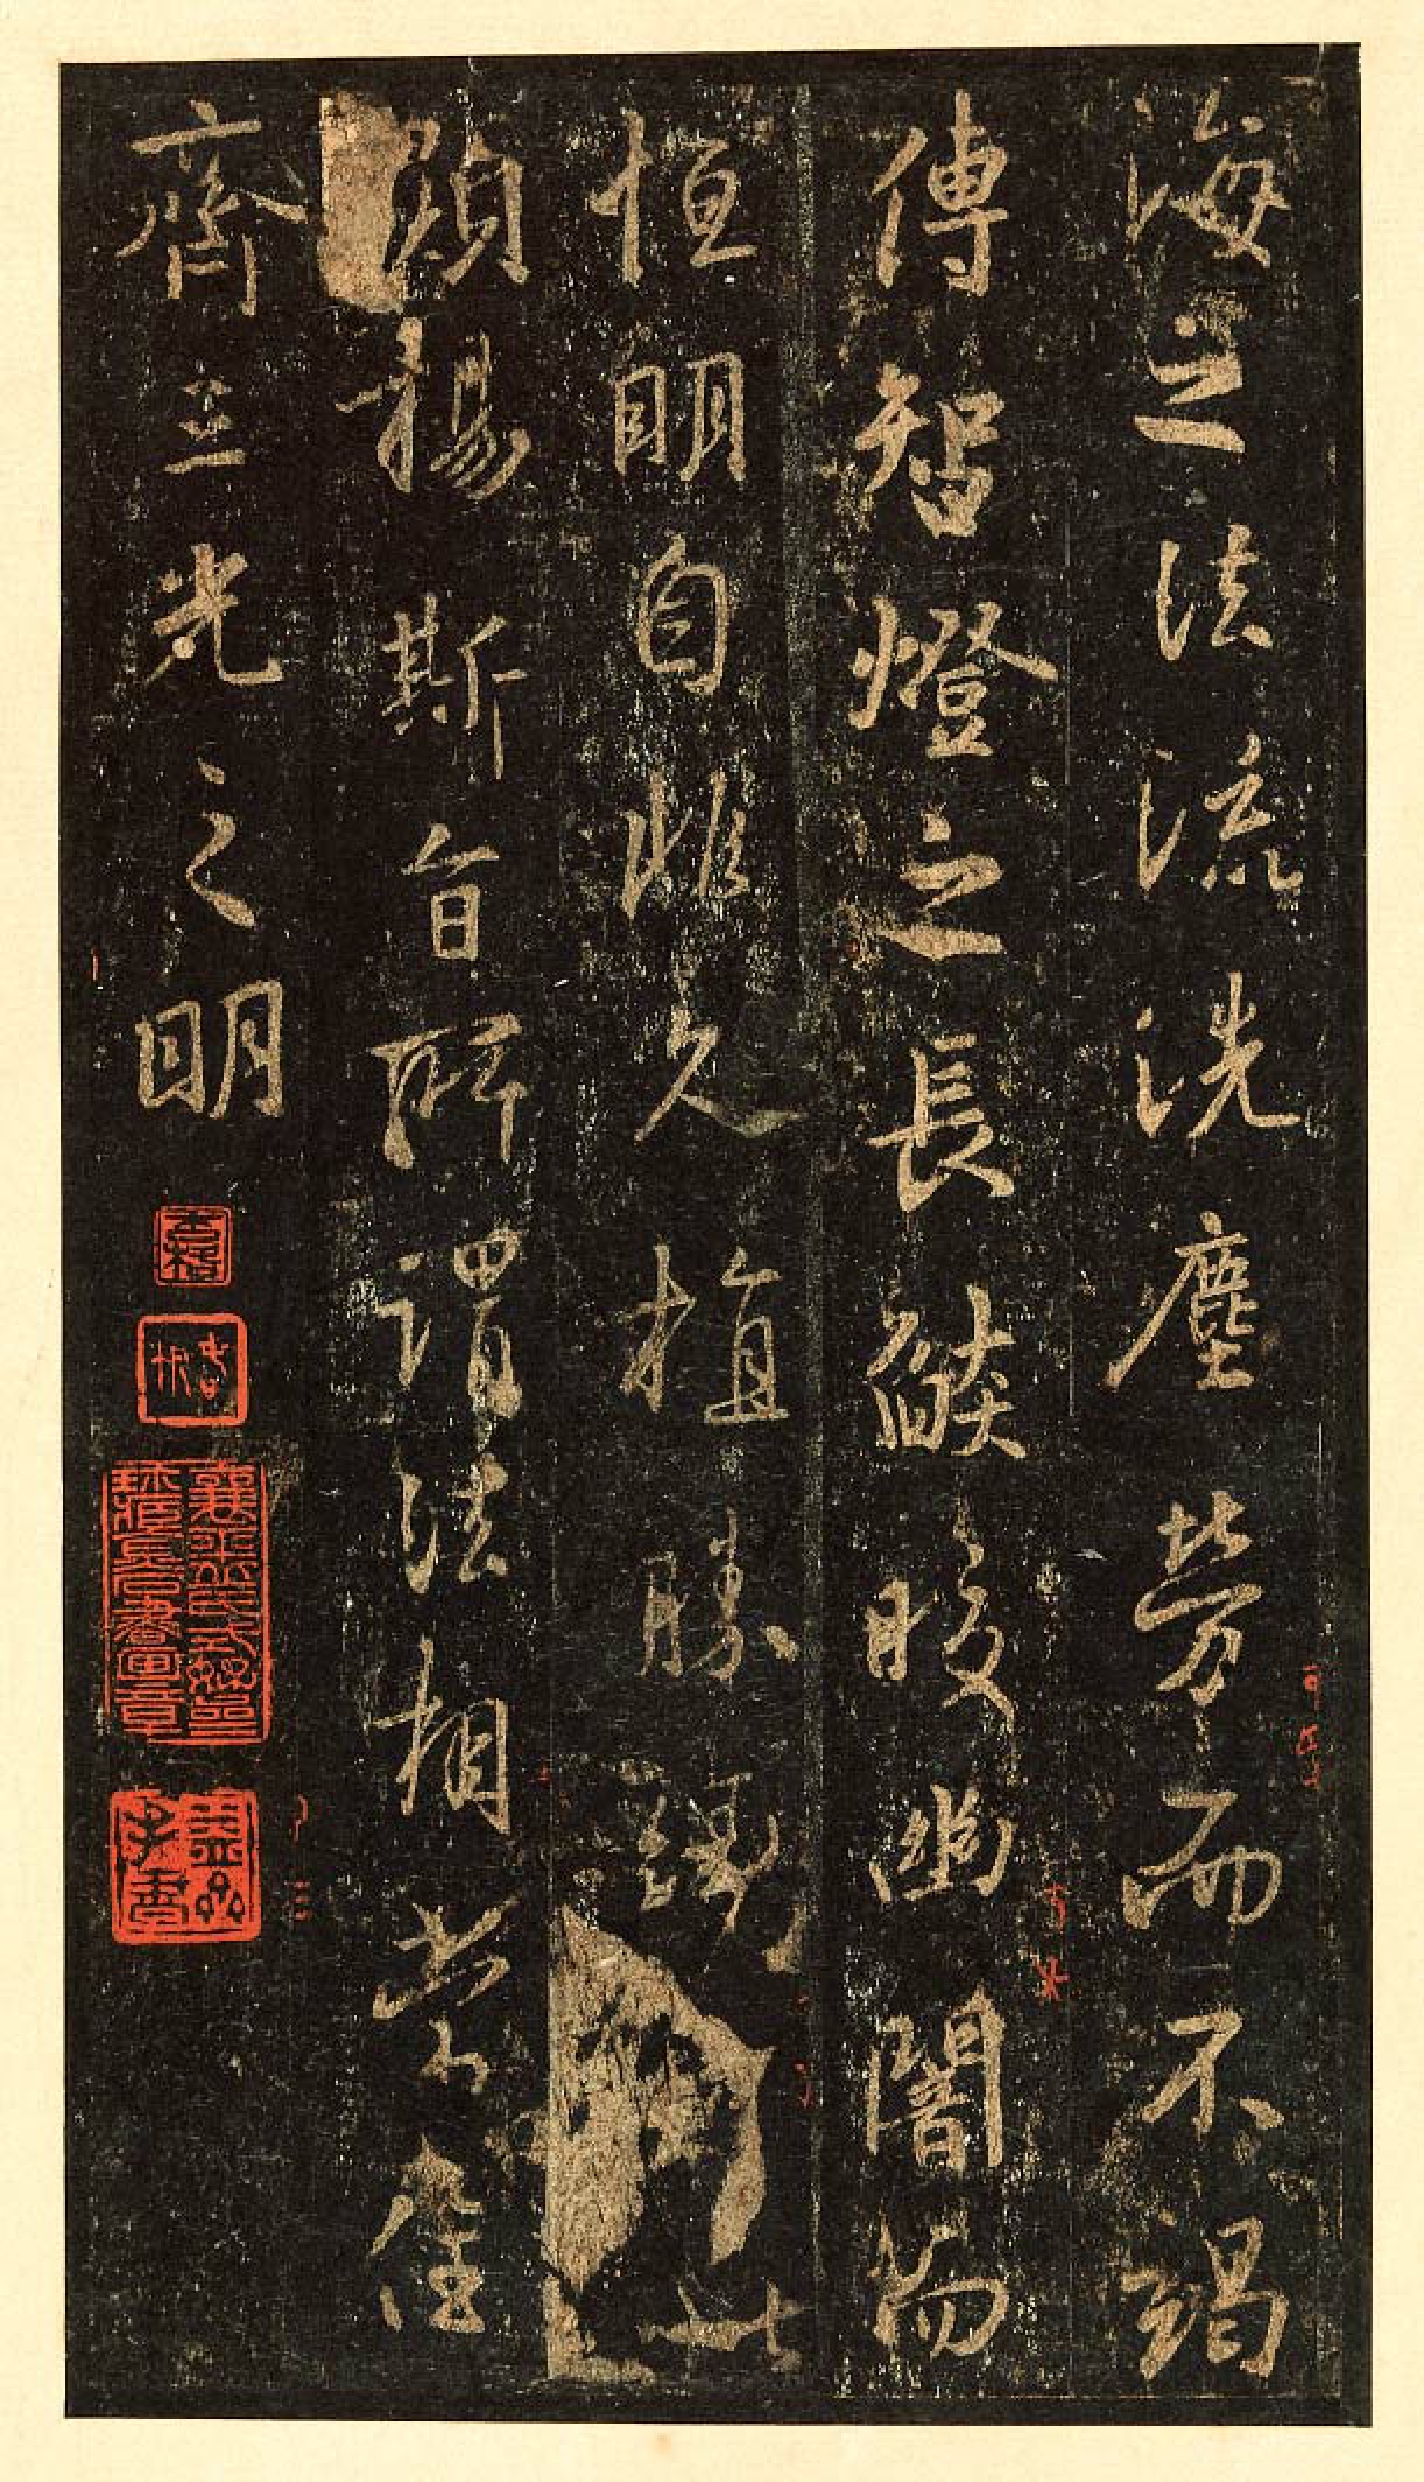 海之法流洗塵勞而不竭
傳智燈之長燄皎幽闇而
恒明自非久植勝緣以
顯揚斯旨所謂法相常住
齊三光之明